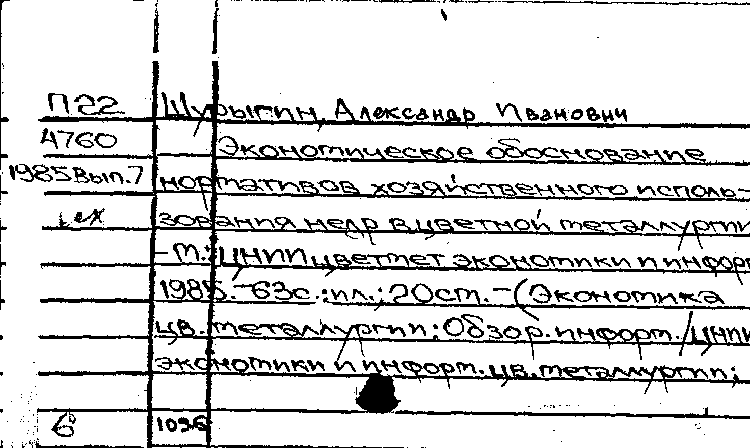 П22 Шурыгин, Александр Иванович
4760 Экономическое обоснование
1985 Вып.7 нормативов хозяйственного исполь-
1ех зования недр в цветной металлургии
- М.: ЦНИИцветмет экономики и информ
1985.-63с.:ил.; 20см.-(Экономика
цв. металлургии: Обзор. информ./ЦНИИ
экономики и информ. цв. металлургии;
6 1096